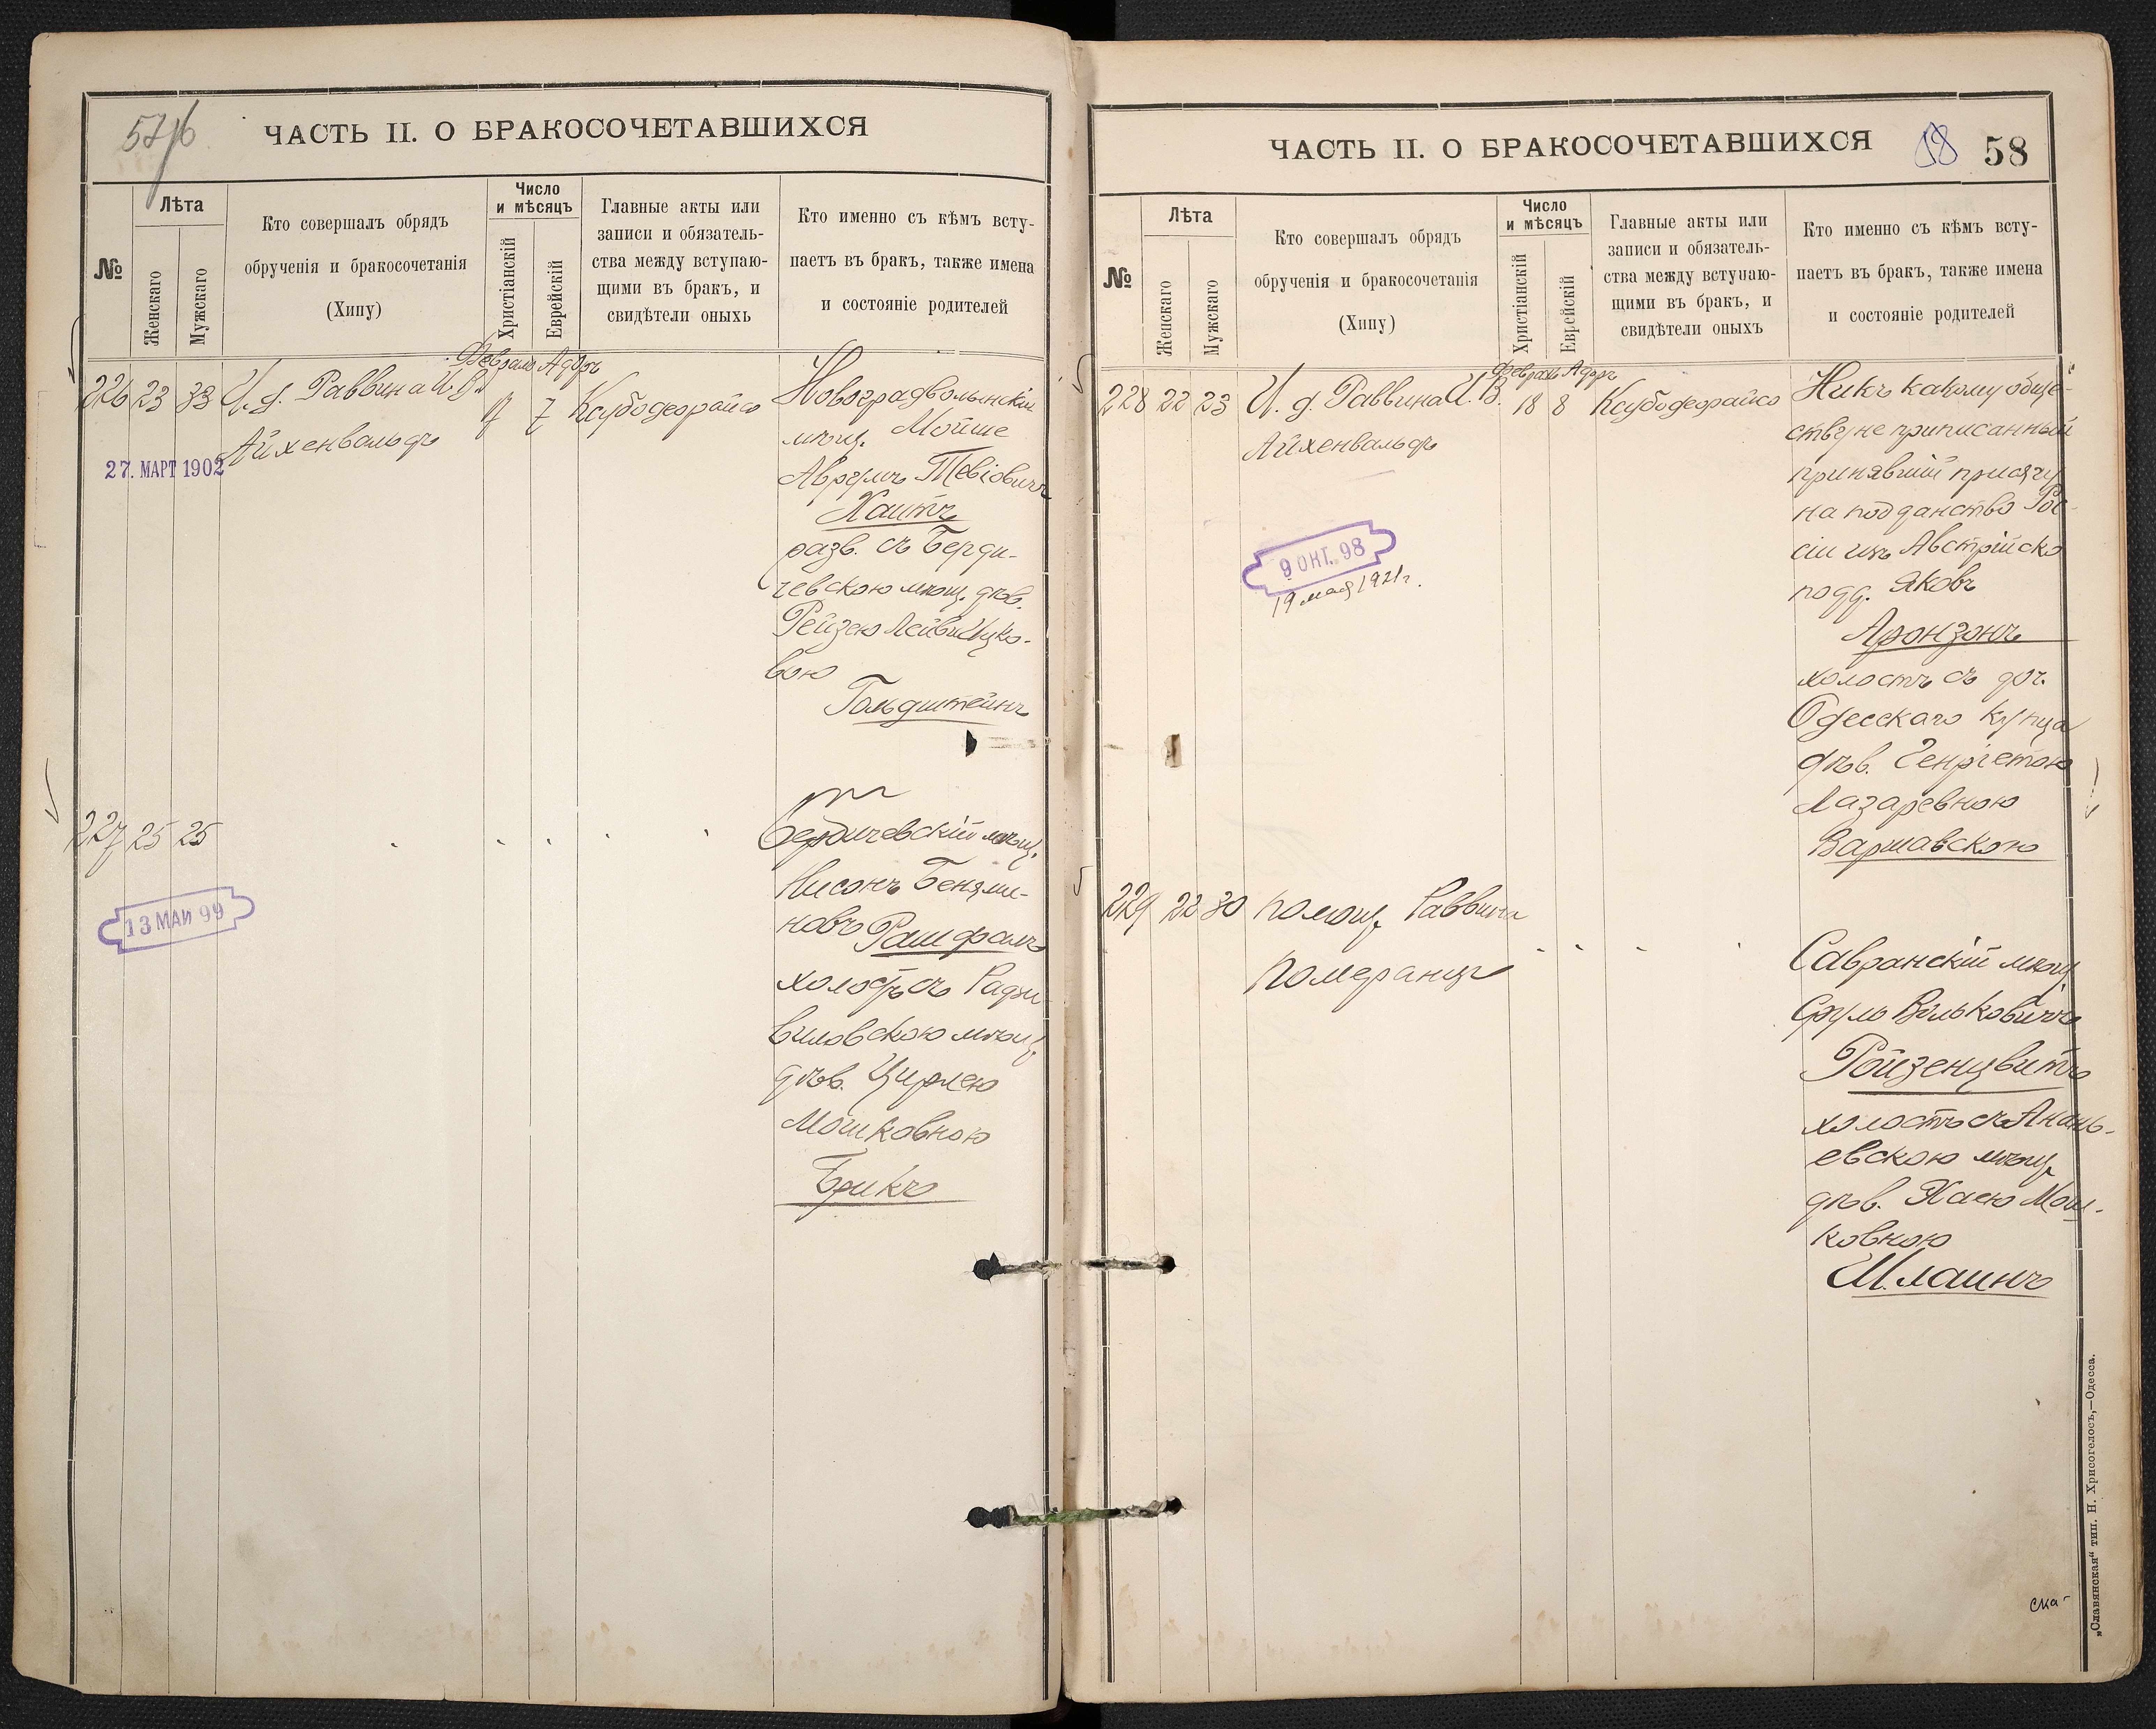 ЧАСТЬ II. О БРАКОСОЧЕТАВШИХСЯ
№
Лѣта
Женскаго
Мужскаго
Кто совершалъ обрядъ
обрученія и бракосочетанія
(Хипу)
Число
и мѣсяцъ
Христіанскій
Еврейскій
Главные акты или
записи и обязатель-
ства между вступаю-
щими въ бракъ, и
свидѣтели оныхъ
Кто именно съ кѣмъ всту-
паетъ въ бракъ, также имена
и состояніе родителей
Февраль Адаръ
226 23 33 И. д. Раввина И. В.
Айхенвальдъ
27. МАРТ 1902
17 7 Ксубодеорайсо
Новоградволынскій
мѣщ. Мойше
Аврумъ Тевіовичъ
Хаитъ
разв. съ Берди-
чевскою мѣщ. дѣв.
Рейзею Лейви Ицко-
вою
Гольдштейнъ
227 25 25
13 МАИ 99
Бердичевскій мѣщ.
Нисонъ Бенями-
новъ Рашфалъ
холостъ съ Радзи-
виловскою мѣщ.
дѣв. Цирлею
Мошковною
Брикъ
ЧАСТЬ II. О БРАКОСОЧЕТАВШИХСЯ
58 58
№
Лѣта
Женскаго
Мужскаго
Кто совершалъ обрядъ
обрученія и бракосочетанія
(Хипу)
Число
и мѣсяцъ
Христіанскій
Еврейскій
Главные акты или
записи и обязатель-
ства между вступаю-
щими въ бракъ, и
свидѣтели оныхъ
Кто именно съ кѣмъ всту-
паетъ въ бракъ, также имена
и состояніе родителей
Февраль Адаръ
228 22 23 И. д. Раввина И. В. 18 8 Ксубодеорайсо
Айхенвальдъ
9 ОКТ. 98
19 мая 1921 г.
Никъ какому обще-
ству не приписанный
принявшій присягу
на подданство Рос-
сіи изъ Австрійско
подд. Яковъ
Аронзонъ
холостъ съ доч.
Одесскаго купца
дѣв. Генріетою
Лазаревною
Варшавскою
229 22 30 Помощ. Раввина
Померанцъ
Савранскій мѣщ.
Сруль Вольковичъ
Ройзенцвитъ
холостъ съ Анань-
евскою мѣщ.
дѣв. Хаею Мош-
ковною
Шлаинъ
ска-
„Славянская“ тип. Н. Хрисогелосъ,—Одесса.